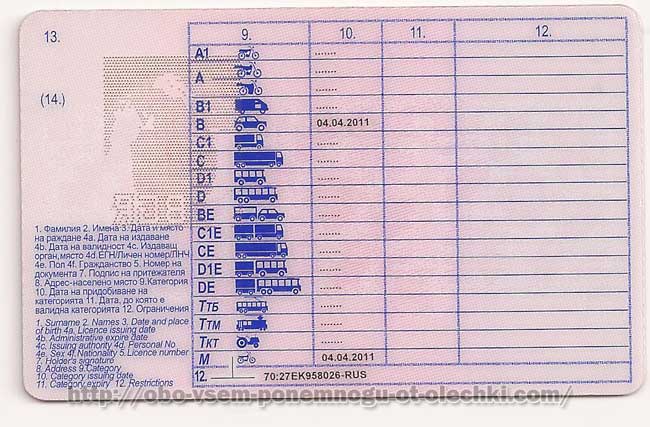 13.
9.
10.
11.
12.
A1 .......
A .......
.......
(14.)
B1 .......
B 04.04.2011
C1 .......
C .......
D1 .......
D .......
BE .......
C1E .......
CE .......
D1E .......
DE .......
Ттб .......
Ттм .......
Ткт .......
M 04.04.2011
12. 70:27EK958026-RUS
1. Фамилия 2. Имена 3. Дата и място
на раждане 4a. Дата на издаване
4b. Дата на валидност 4c. Издаващ
орган,място 4d.ЕГН/Личен номер/ЛНЧ
4e. Пол 4f. Гражданство 5. Номер на
документа 7. Подпис на притежателя
8. Адрес-населено място 9.Категория
10. Дата на придобиване на
категорията 11. Дата, до която е
валидна категорията 12. Ограничения
1. Surname 2. Names 3. Date and place
of birth 4a. Licence issuing date
4b. Administrative expire date
4c. Issuing authority 4d. Personal No
4e. Sex 4f. Nationality 5.Licence number
7. Holder's signature
8. Address 9.Category
10. Category issuing date
11. Category expiry 12. Restrictions
http://obo-vsem-ponemnogu-ot-olechki.com/